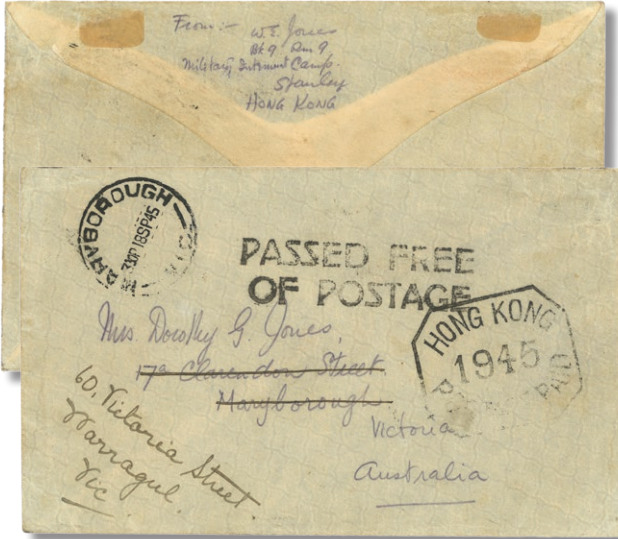 From:- W.E. Jones
Bk 9 Rm 9
Military Internment Camp.
Stanley
HONG KONG
MARYBOROUGH
18SP45
VIC
PASSED FREE
OF POSTAGE
HONG KONG
1945
PAID
Mrs. Dorothy G. Jones,
17a Clarendon Street
Maryborough
Victoria
Australia
60, Victoria Street.
Warragul.
Vic